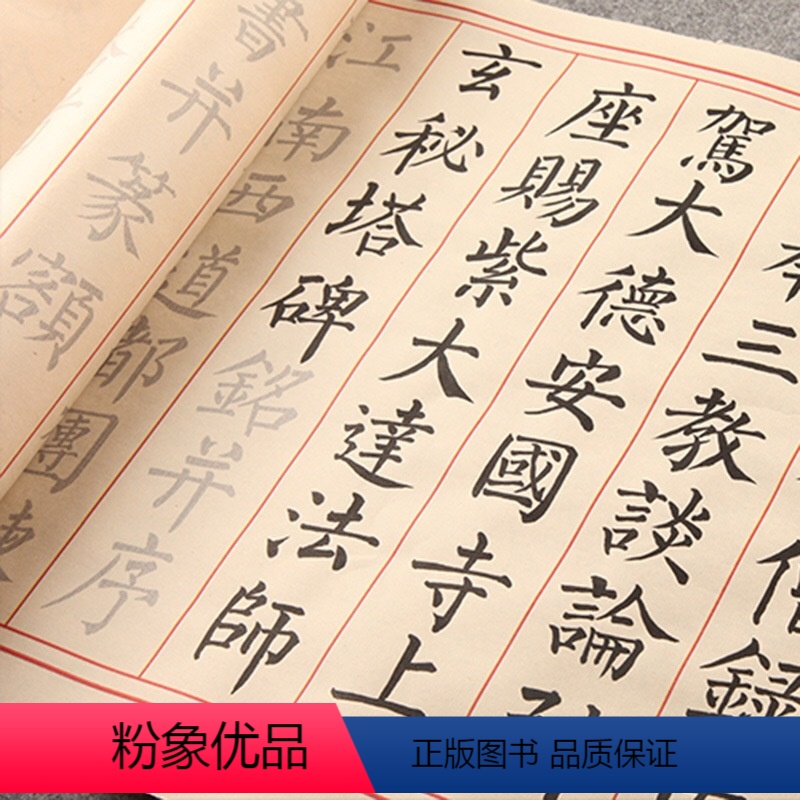 僧錄
三教談論
駕大德安國寺上
座賜紫大達法師
玄秘塔碑銘并序
江南西道都團練
書并篆額
粉象优品
正版图书 品质保证